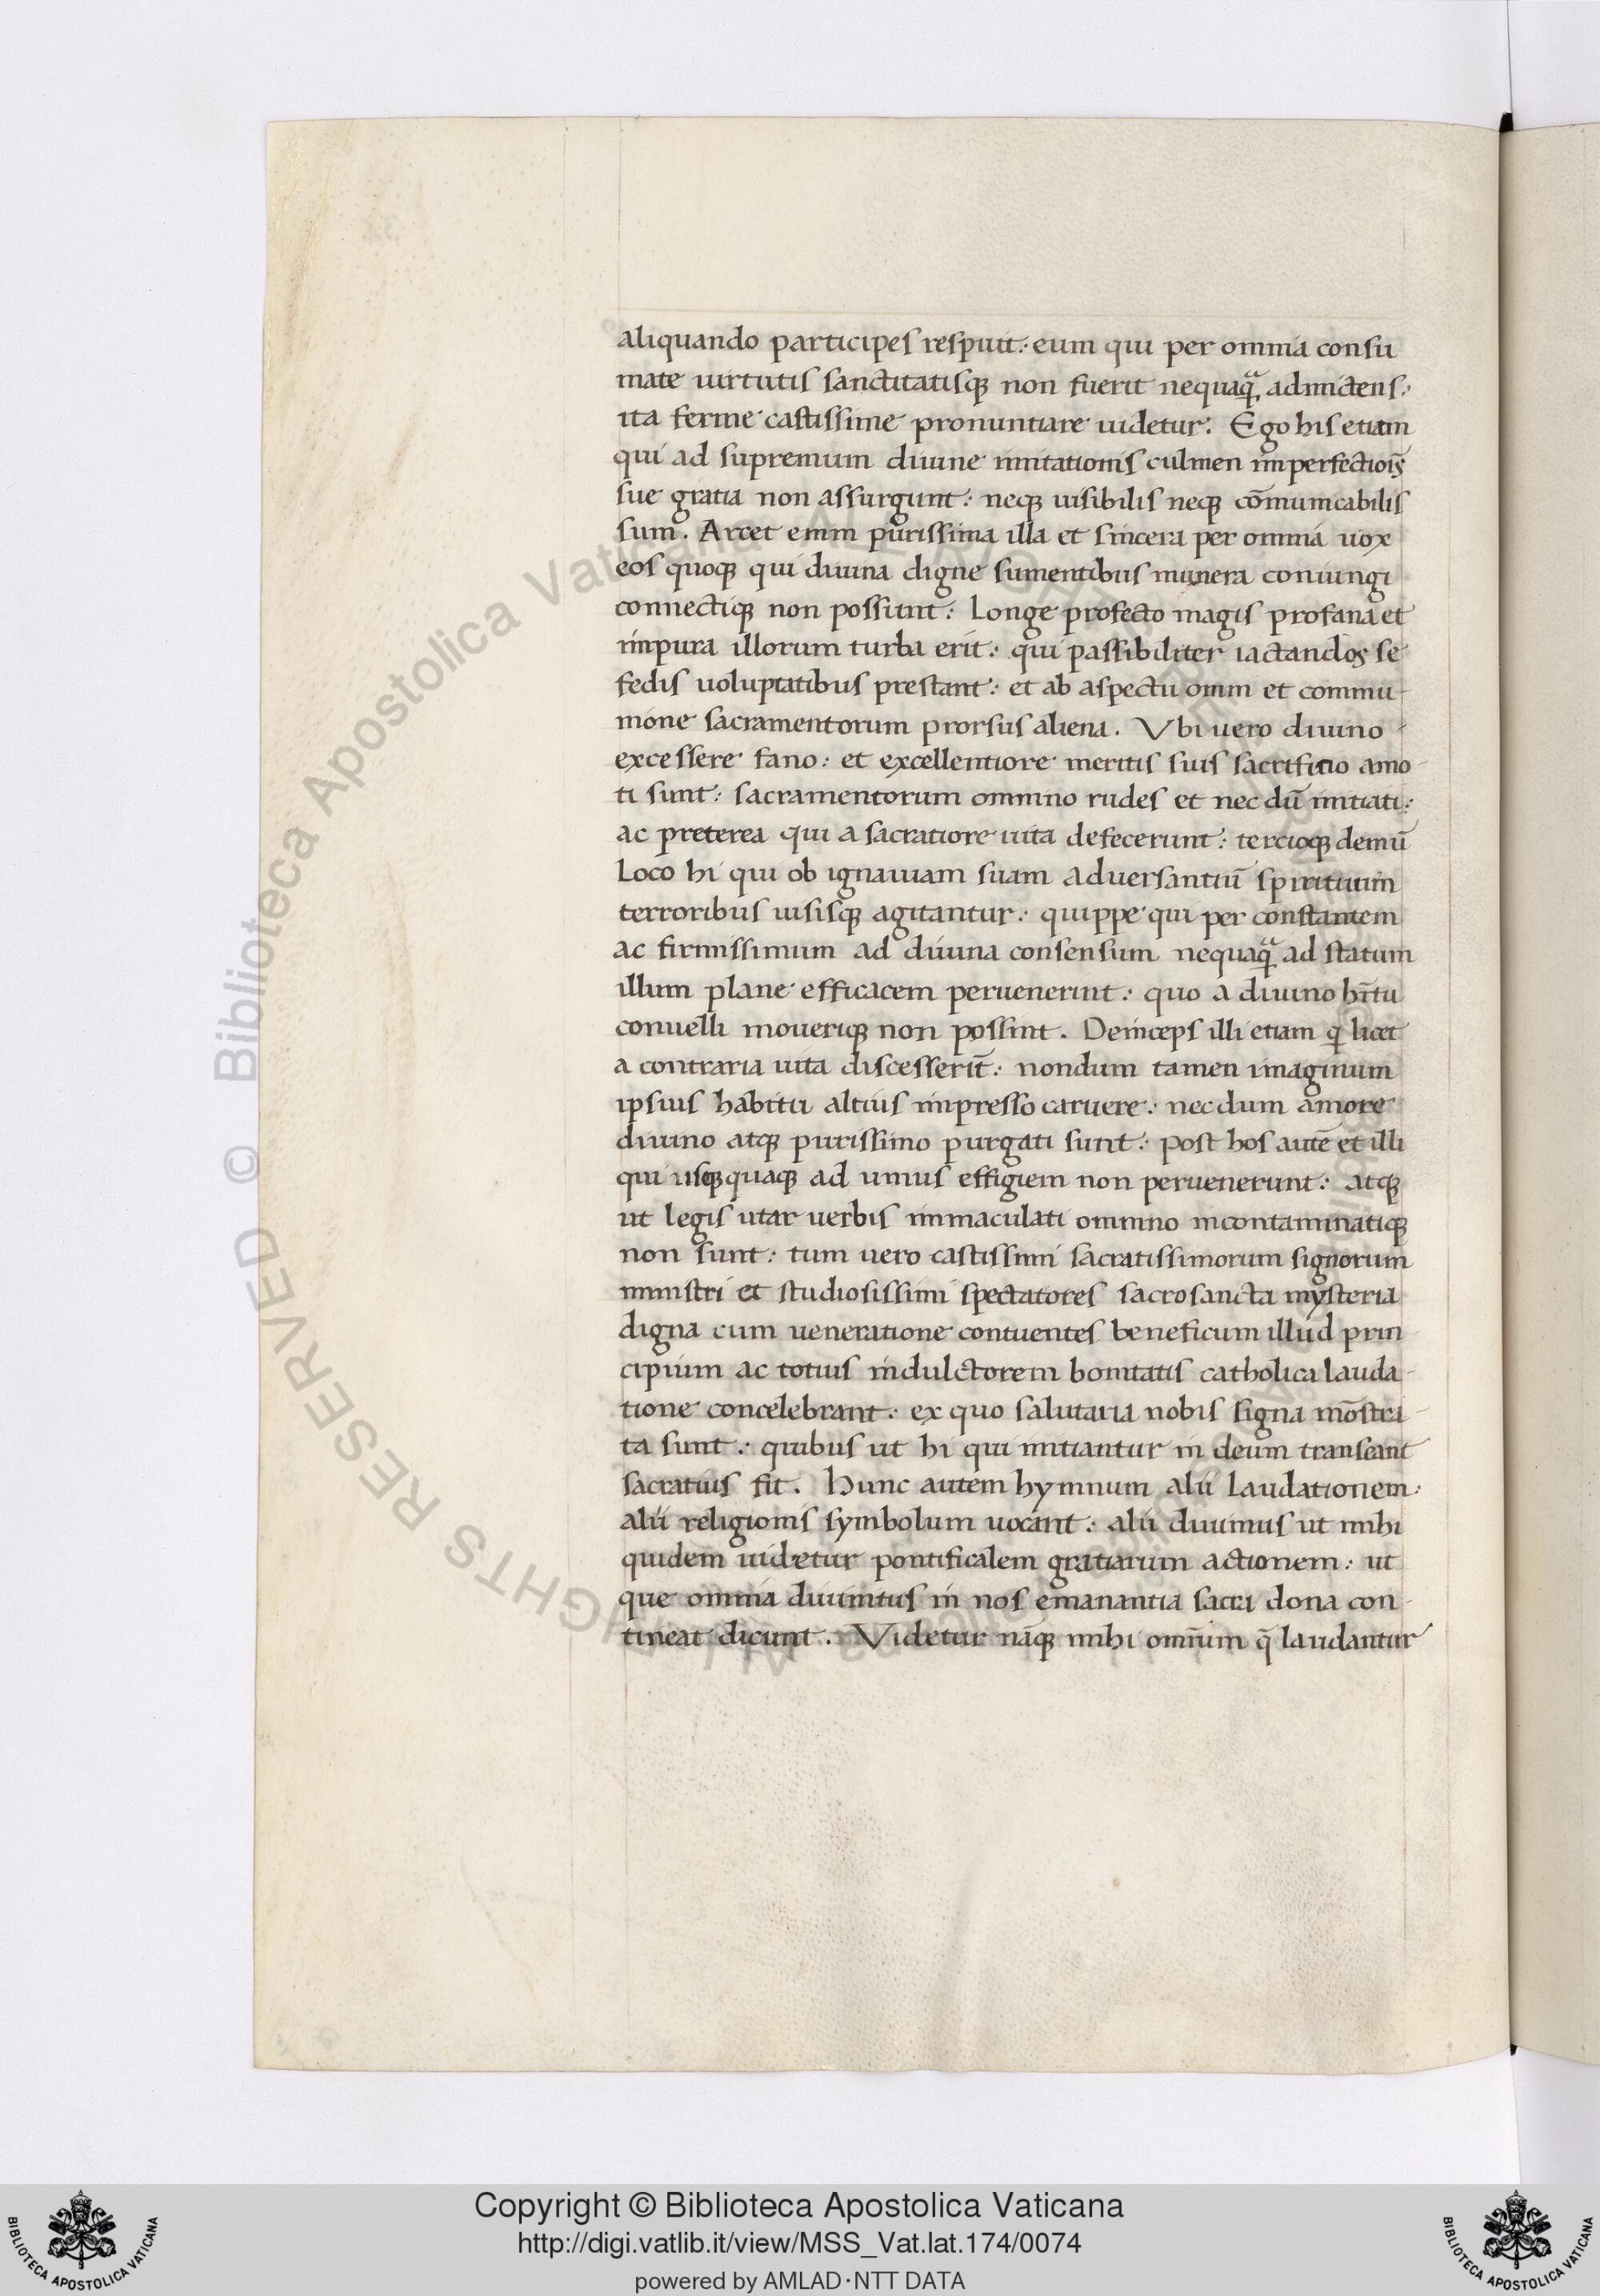 aliquando participes respuit: eum qui per omnia consu
mate uirtutis sanctitatisqꝫ non fuerit nequaqᷓ admictens:
ita ferme castissime pronuntiare uidetur: Ego his etiam
qui ad supremum diuine imitationis culmen imperfectiōis
sue gratia non assurgunt: neqꝫ uisibilis neqꝫ cōmunicabilis
sum. Arcet enim purissima illa et sincera per omnia uox
eos quoqꝫ qui diuina digne sumentibus munera coniungi
connectiqꝫ non possunt: Longe profecto magis profana et
impura illorum turba erit: qui passibiliter iactandos se
fedis uoluptatibus prestant: et ab aspectu omni et commu-
nione sacramentorum prorsus aliena. Vbi uero diuino
excessere fano: et excellentiore meritis suis sacrificio amo-
ti sunt: sacramentorum omnino rudes et nec dū initiati:
ac preterea qui a sacratiore uita defecerunt: tercioqꝫ demū
Loco hi qui ob ignauiam suam aduersantiū spirituum
terroribus uisisqꝫ agitantur: quippe qui per constantem
ac firmissimum ad diuina consensum nequaqᷓ ad statum
illum plane efficacem peruenerint: quo a diuino hītu
conuelli mouerique non possint. Deinceps illi etiam q licet
a contraria uita discesserīt: nondum tamen imaginum
ipsius habitu altius impresso caruere: nec dum amore
diuino atqꝫ purissimo purgati sunt: post hos autē et illi
qui usqꝫquaqꝫ ad unius effigiem non peruenerunt: atqꝫ
ut legis utar uerbis immaculati omnino incontaminatiqꝫ
non sunt: tum uero castissimi sacratissimorum signorum
ministri et studiosissimi spectatores sacrosancta mysteria
digna cum ueneratione contuentes beneficum illud prin-
cipium ac totius indulctorem bonitatis catholica lauda-
tione concelebrant: ex quo salutaria nobis signa mōstra-
ta sunt: quibus ut hi qui initiantur in deum transeant
sacratius fit. Hunc autem hymnum alii Laudationem:
alii religionis symbolum uocant: alii diuinius ut mihi
quidem uidetur pontificalem gratiarum actionem: ut
que omnia diuinitus in nos emanantia sacra dona con-
tineat dicunt. Videtur nāqꝫ mihi omīum q̄ laudantur
© Biblioteca Apostolica Vaticana ALL RIGHTS RESERVED
Copyright © Biblioteca Apostolica Vaticana
http://digi.vatlib.it/view/MSS_Vat.lat.174/0074
powered by AMLAD·NTT DATA
BIBLIOTECA APOSTOLICA VATICANA
BIBLIOTECA APOSTOLICA VATICANA